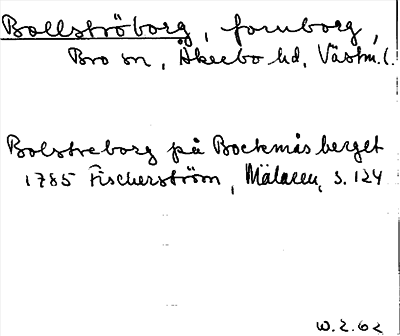 Bollströborg, fornborg,
Bro sn, Åkerbo hd, Västm.l.
Bolstreborg på Bockmås berget
1785 Fischerström, Mälaren, s. 124
W.Z. 62